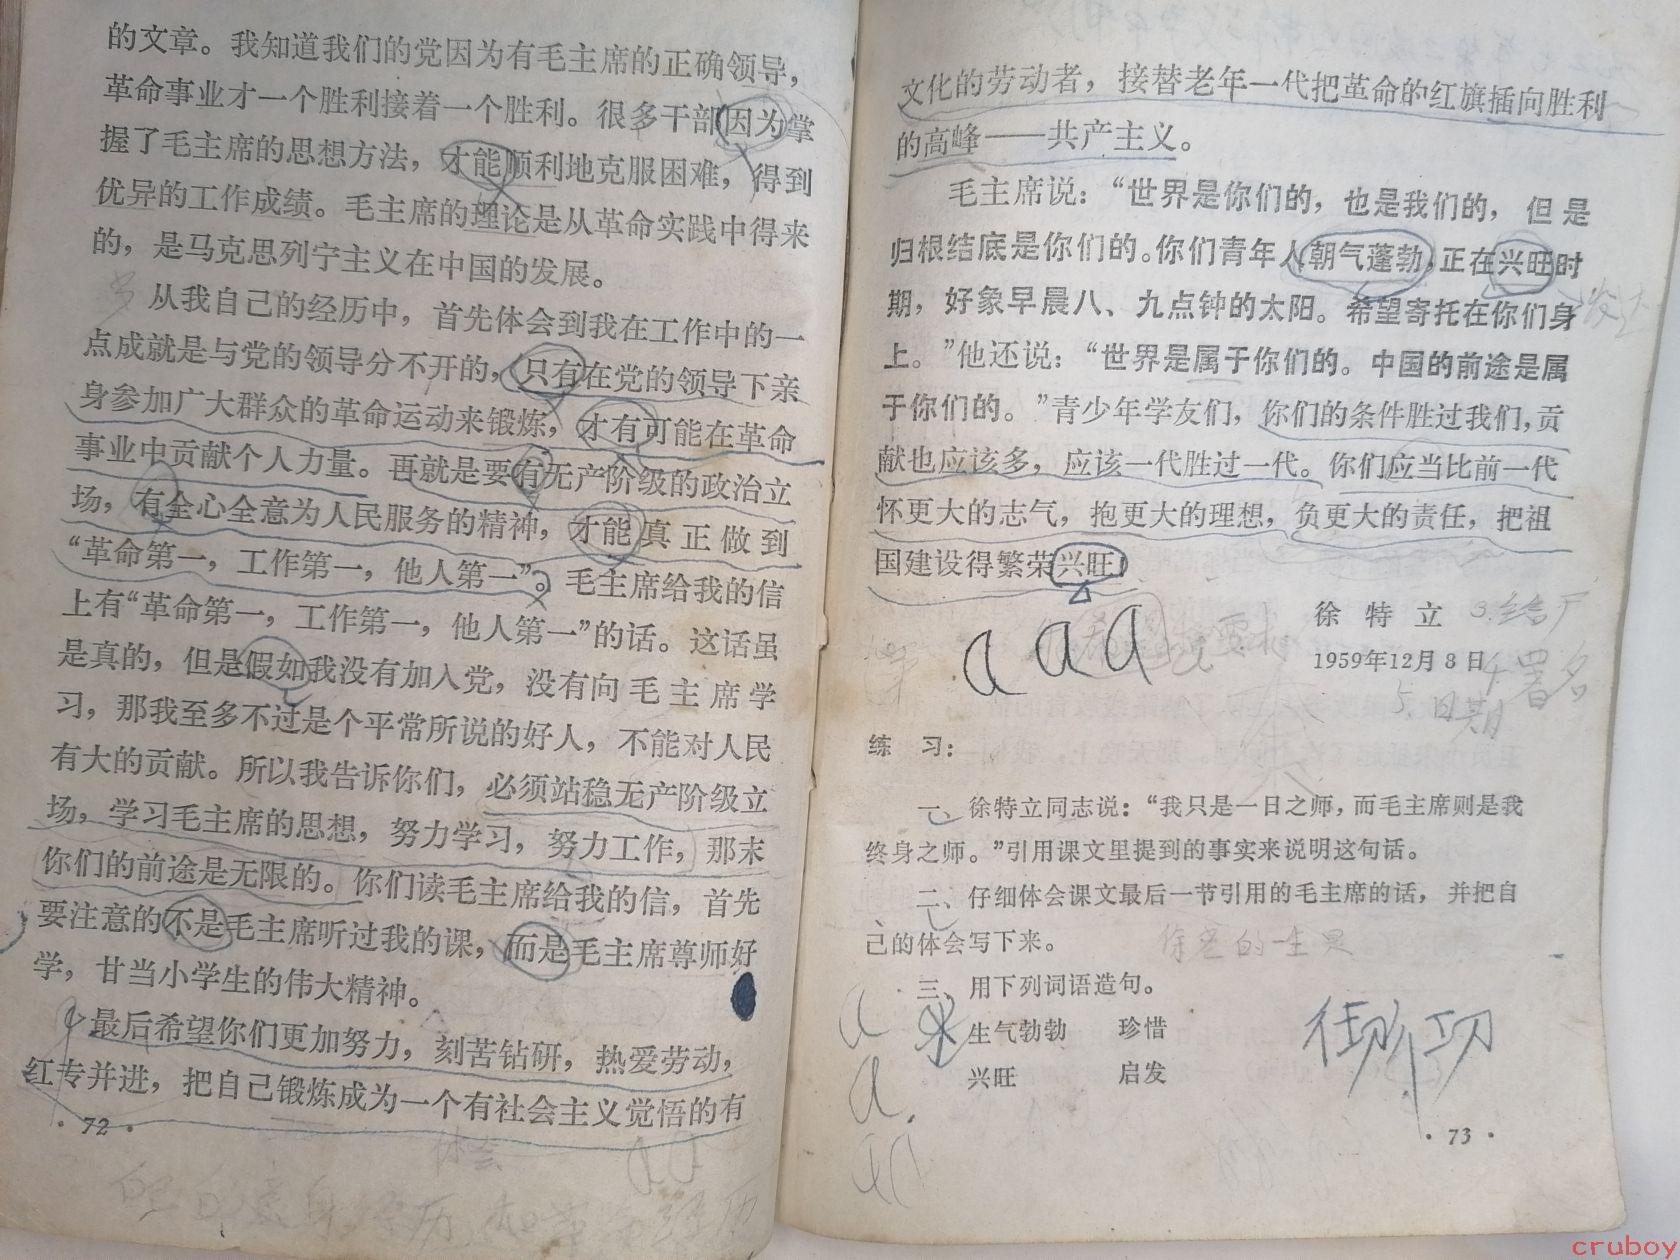 的文章。我知道我们的党因为有毛主席的正确领导，
革命事业才一个胜利接着一个胜利。很多干部因为掌
握了毛主席的思想方法，才能顺利地克服困难，得到
优异的工作成绩。毛主席的理论是从革命实践中得来
的，是马克思列宁主义在中国的发展。
从我自己的经历中，首先体会到我在工作中的一
点成就是与党的领导分不开的，只有在党的领导下亲
身参加广大群众的革命运动来锻炼，才有可能在革命
事业中贡献个人力量。再就是要有无产阶级的政治立
场，有全心全意为人民服务的精神，才能真正做到
“革命第一，工作第一，他人第一”。毛主席给我的信
上有“革命第一，工作第一，他人第一”的话。这话虽
是真的，但是假如我没有加入党，没有向毛主席学
习，那我至多不过是个平常所说的好人，不能对人民
有大的贡献。所以我告诉你们，必须站稳无产阶级立
场，学习毛主席的思想，努力学习，努力工作，那末
你们的前途是无限的。你们读毛主席给我的信，首先
要注意的不是毛主席听过我的课，而是毛主席尊师好
学，甘当小学生的伟大精神。
最后希望你们更加努力，刻苦钻研，热爱劳动，
红专并进，把自己锻炼成为一个有社会主义觉悟的有
·72·
体会
文化的劳动者，接替老年一代把革命的红旗插向胜利
的高峰——共产主义。
毛主席说：“世界是你们的，也是我们的，但是
归根结底是你们的。你们青年人朝气蓬勃，正在兴旺时
期，好象早晨八、九点钟的太阳。希望寄托在你们身
上。”他还说：“世界是属于你们的。中国的前途是属
于你们的。”青少年学友们，你们的条件胜过我们，贡
献也应该多，应该一代胜过一代。你们应当比前一代
怀更大的志气，抱更大的理想，负更大的责任，把祖
国建设得繁荣兴旺！
徐特立 3.结尾
1959年12月8日 4署名
5.日期
练 习：
一、徐特立同志说：“我只是一日之师，而毛主席则是我
终身之师。”引用课文里提到的事实来说明这句话。
二、仔细体会课文最后一节引用的毛主席的话，并把自
己的体会写下来。
徐老的一生是
三、用下列词语造句。
生气勃勃 珍惜
兴旺 启发
·73·
cruboy